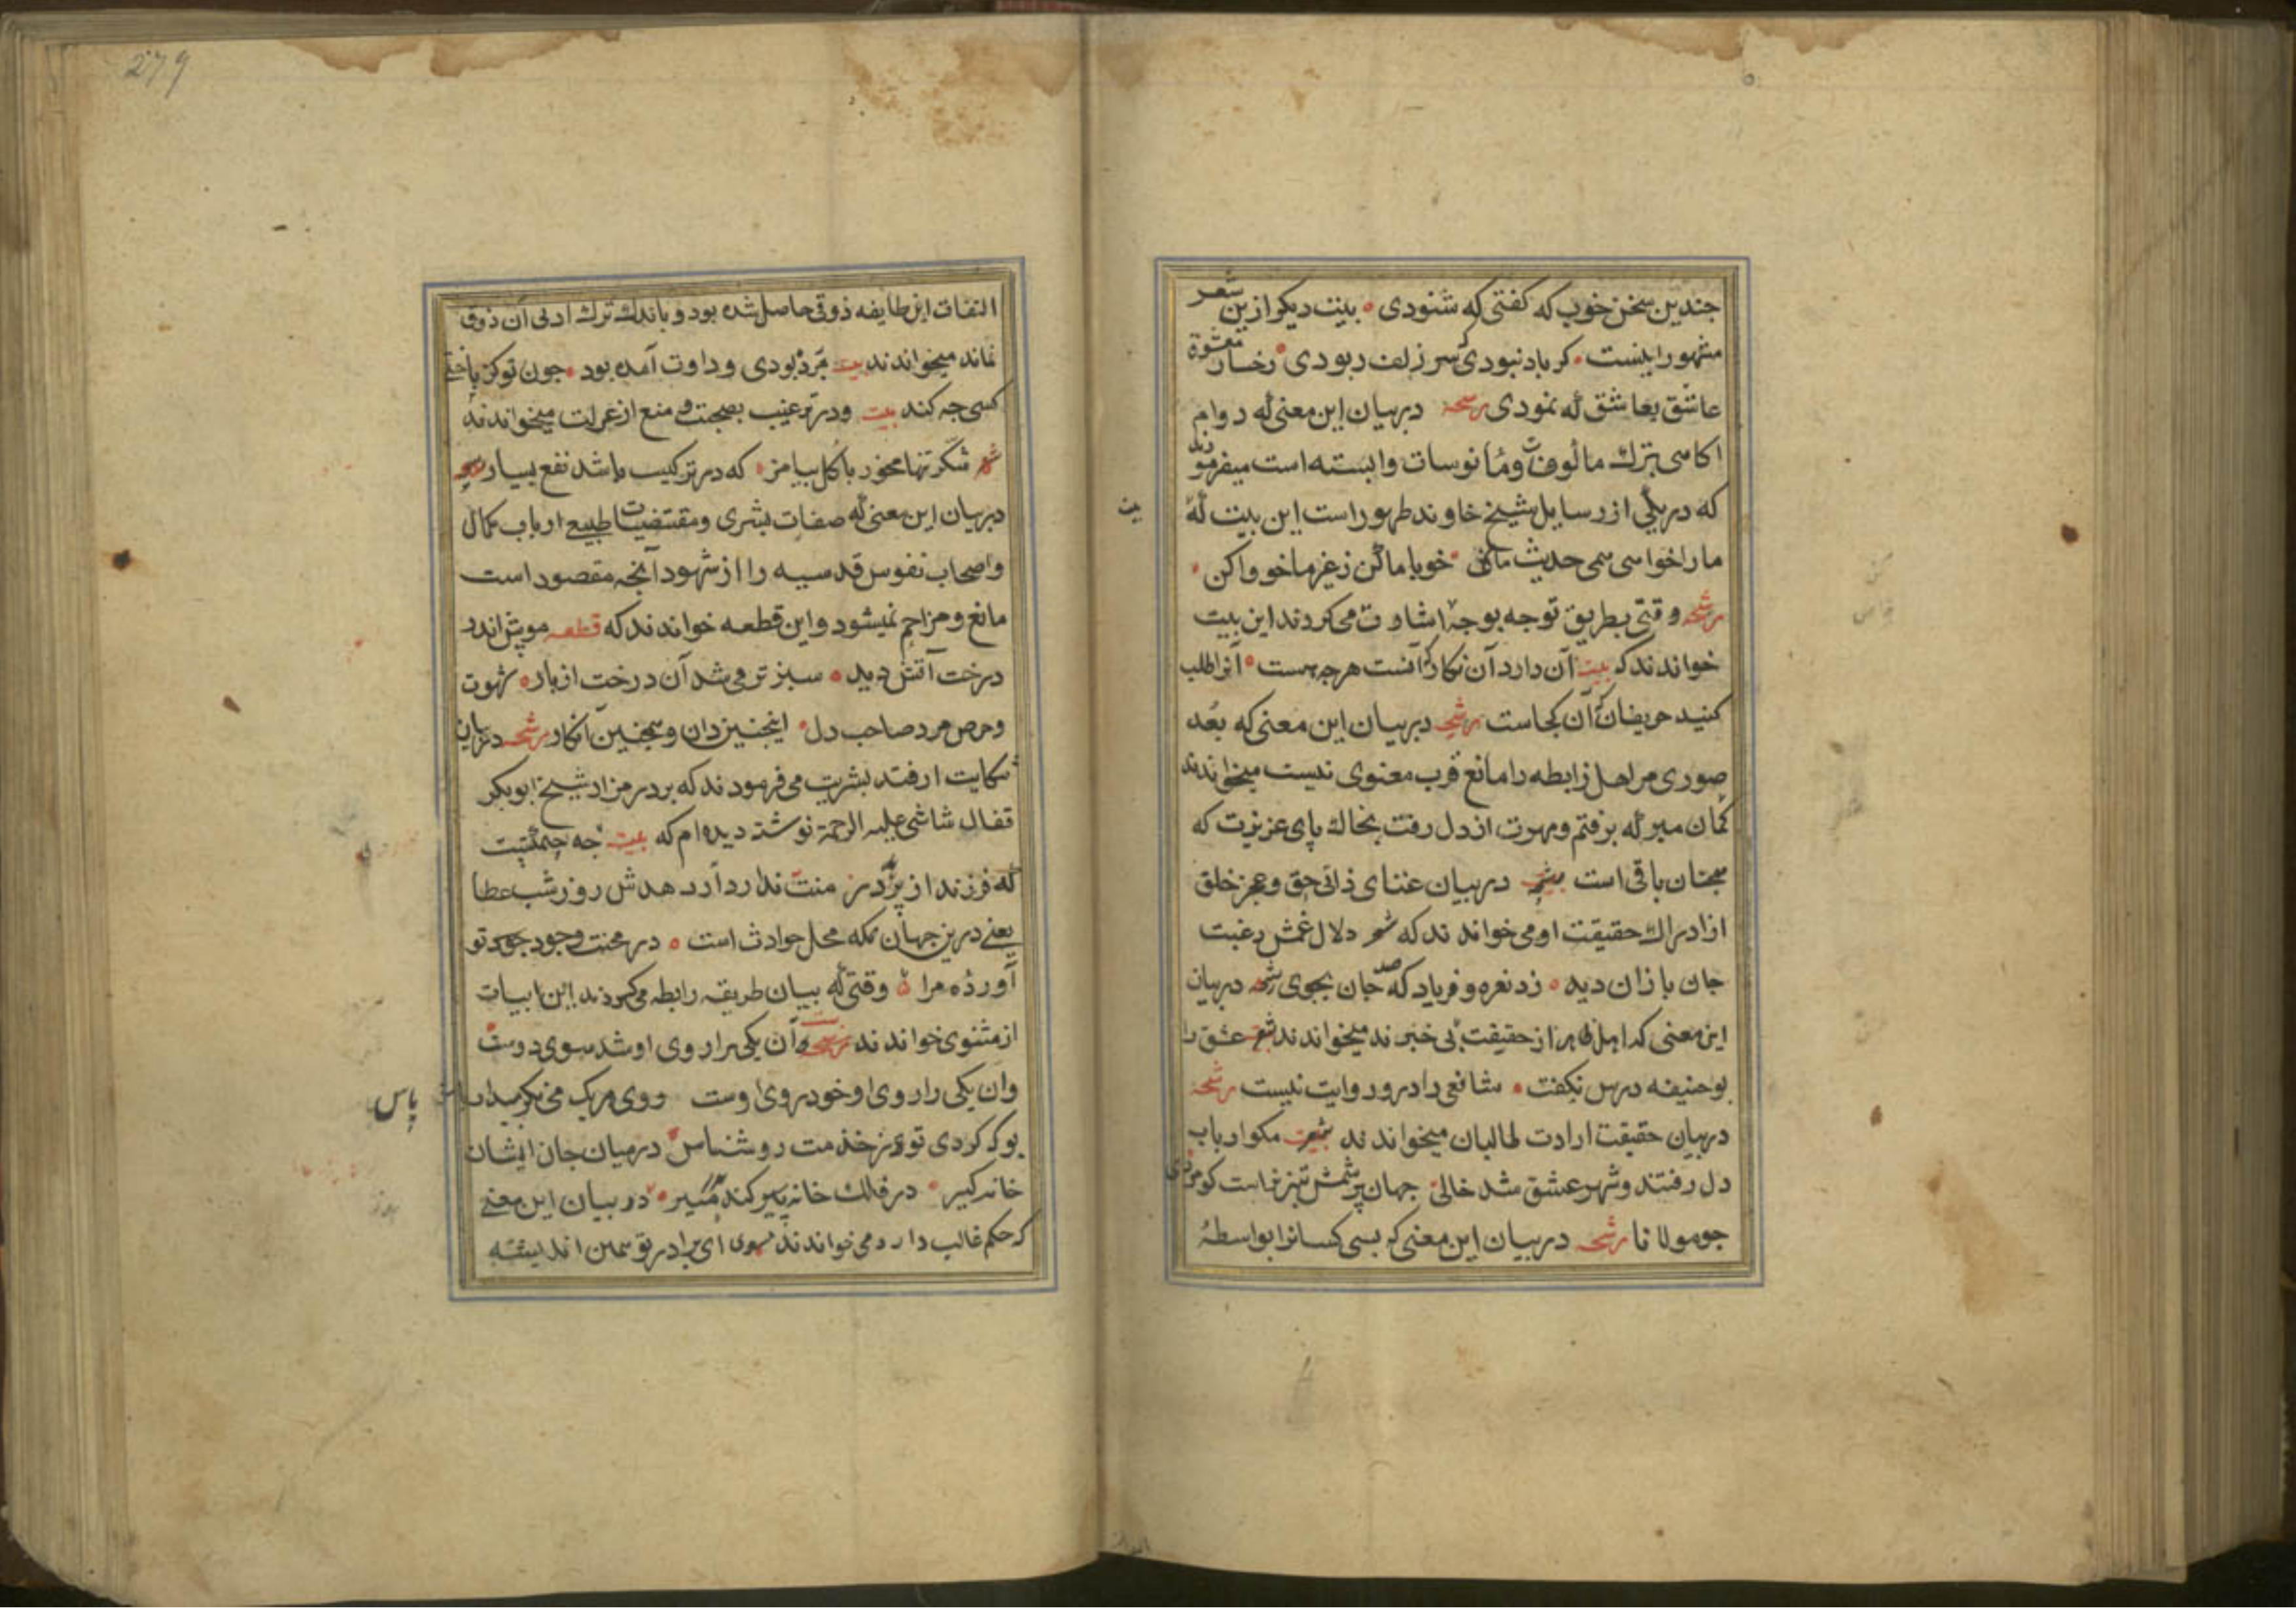 جندین سخن خوب که کفتی که شنودی بیت دیکر ازین شعر
مشهور اینست کر باد نبودی که سر زلف ربودی رخسار معشوقۀ
عاشق بعاشق که نمودی رشحه در بیان این معنی که دوام
اکاهی بترك مألوفات و مأنوسات وابسته است میفرمودند
که در یکی از رسایل شیخ خاوند طهور است این بیت که
بیت
ما را خواهی همی حدیث ما کن خو با ما کن ز غیر ما خو واکن
رشحه وقتی بطریق توجه بوجه اشارت می کردند این بیت
خواندند که بیت آن دارد آن نکار که آنست هرچه هست آنرا طلب
کنید حریفان که آن کجاست رشحه در بیان این معنی که بعد
صوری مر اهل رابطه را مانع قرب معنوی نیست میخواندند
کمان مبر که برفتم و مهرت از دل رفت بخاك پای عزیزت که
همجنان باقی است در بیان غنای ذاتی حق و عجز خلق
از ادراك حقیقت او می خواندند که شعر دلال غمش رغبت
جان بازان دید زد نعره و فریاد که صد جان بجوی رشحه در بیان
این معنی که اهل ظاهر از حقیقت بی خبرند میخواندند شعر عشق را
بو حنیفه درس نکفت شافعی را درو روایت نیست رشحه
در بیان حقیقت ارادت طالبان میخواندند مکو ارباب
دل رفتند و شهر عشق شد خالی جهان پر شمس تبریز است کو مردی
جو مولانا رشحه در بیان این معنی که بسی کسانرا بواسطۀ
279
التفات این طایفه ذوقی حاصل شده بود و باندك ترك ادبی آن ذوق
نماند میخواندند بیت مرد بودی و داوت آمده بود جون تو کژ باختی
کسی جه کند بیت و در ترغیب بصحبت و منع از عزلت میخواندند
شکر تنها مخور با کل بیامیز که در ترکیب باشد نفع بسیار رشحه
در بیان این معنی که صفات بشری و مقتضیات طبیعی ارباب کمال
و اصحاب نفوس قدسیه را از شهود آنچه مقصود است
مانع و مزاحم نمیشود و این قطعه خواندند که قطعه موسی اندر
درخت آتش دید سبزتر می شد آن درخت از نار شهوت
و حرص مرد صاحب دل اینچنین دان و همچنین انکار رشحه در بیان
شکایت از قید بشریت می فرمودند که بر در مزار شیخ ابوبکر
قفال شاشی علیه الرحمة نوشته دیده ام که بیت
که فرزند از پدر منت ندارد ار دهدش روز و شب عطا
یعنی درین جهان که محل حوادث است در محنت وجود تو
آوردۀ مرا وقتی که بیان طریقه رابطه می کردند این ابیات
از مثنوی خواندند رشحه آن یکی را روی او شد سوی دوست
وان یکی را روی او خود روی اوست روی هر یک می نکر میدار
پاس
بوک کردی تو ز خدمت روشناس در میان جان ایشان
خانه کیر در فلك خانه کند بدر منیر در بیان این معنی
که حکم غالب دارد می خواندند ای برادر تو همین اندیشۀ